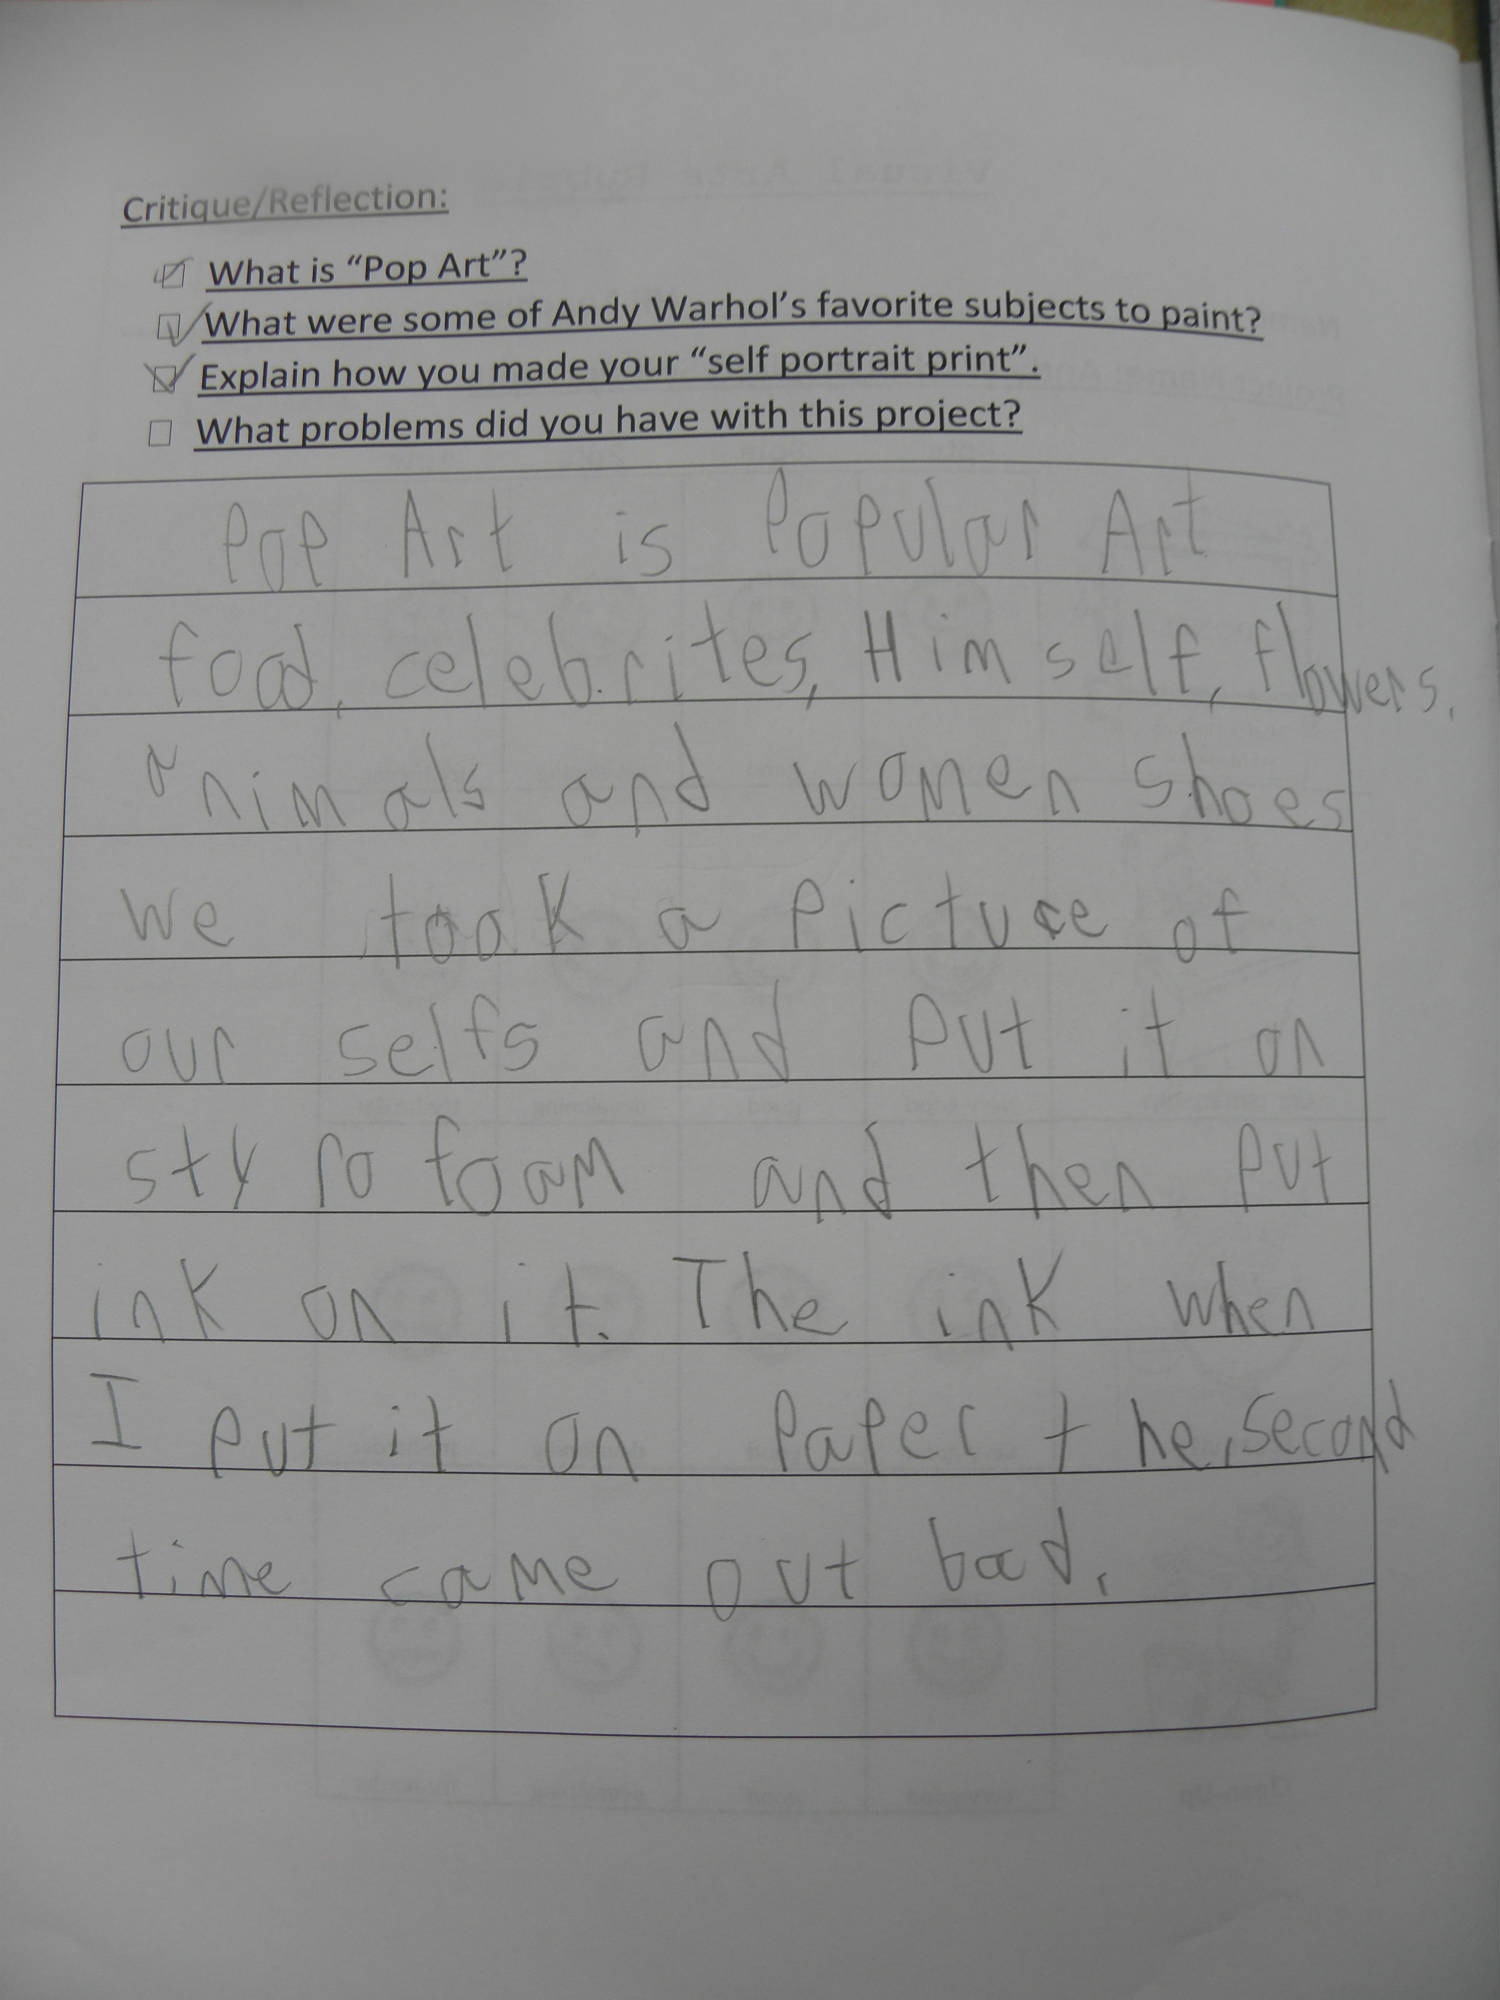 Critique/Reflection:
What is “Pop Art”?
What were some of Andy Warhol’s favorite subjects to paint?
Explain how you made your “self portrait print”.
What problems did you have with this project?
Pop Art is Popular Art
food, celebrites, Himself, flowers,
animals and women shoes
we took a picture of
our selfs and put it on
styrofoam and then put
ink on it. The ink when
I put it on paper the second
time came out bad.